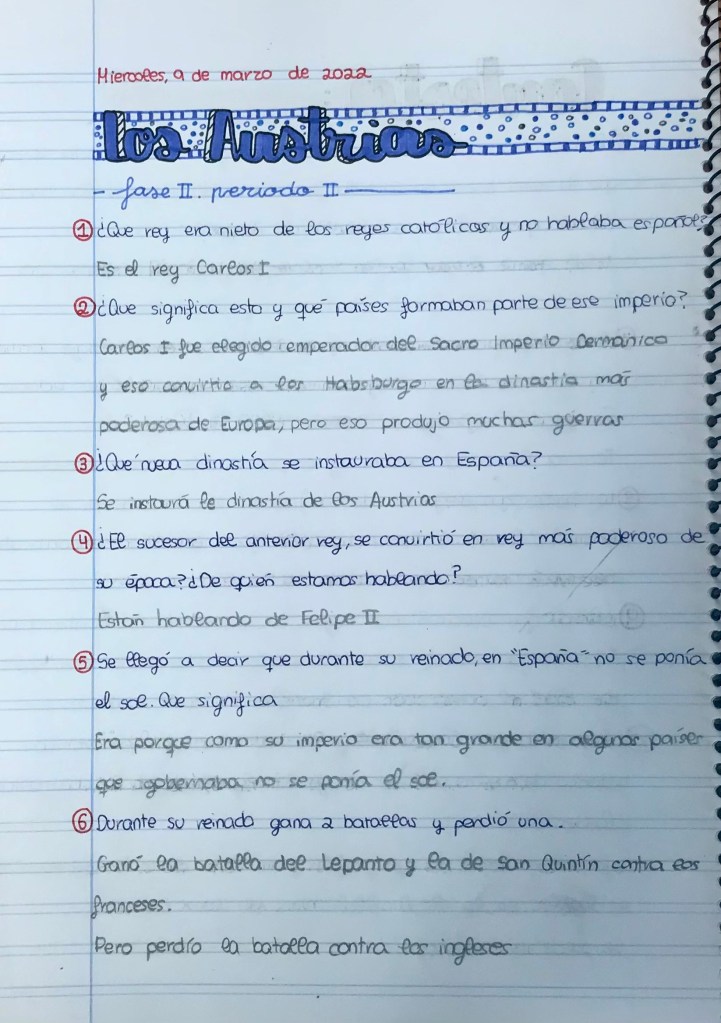 Miercoles, 9 de marzo de 2022
Los Austrias
- fase II. periodo II
① ¿Que rey era nieto de los reyes católicos y no hablaba español?
Es el rey Carlos I
② ¿Que significa esto y qué países formaban parte de ese imperio?
Carlos I fue elegido emperador del Sacro Imperio Germánico
y eso convirtio a los Habsburgo en la dinastía más
poderosa de Europa, pero eso produjo muchas guerras
③ ¿Qué nueva dinastía se instauraba en España?
Se instaurá la dinastía de los Austrias
④ ¿El sucesor del anterior rey, se convirtió en rey más poderoso de
su época? ¿De quién estamos hablando?
Están hablando de Felipe II
⑤ Se llegó a decir que durante su reinado, en "España" no se ponía
el sol. Que significa
Era porque como su imperio era tan grande en algunos países
que gobernaba no se ponía el sol.
⑥ Durante su reinado gana 2 batallas y perdió una.
Ganó la batalla del Lepanto y la de San Quintín contra los
franceses.
Pero perdío la batalla contra los ingleses